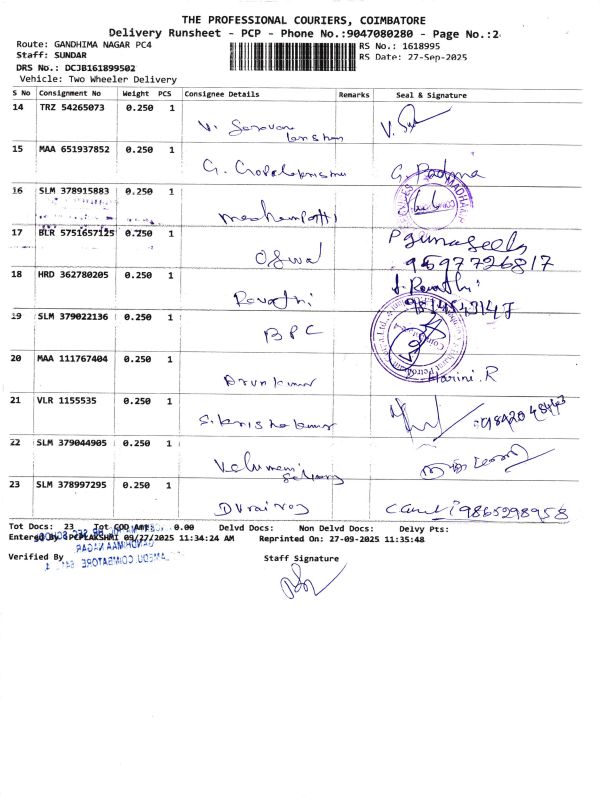 THE PROFESSIONAL COURIERS, COIMBATORE
Delivery Runsheet - PCP - Phone No.:9047080280 - Page No.:2
Route: GANDHIMA NAGAR PC4
RS No.: 1618995
Staff: SUNDAR
RS Date: 27-Sep-2025
DRS No.: DCJB161899502
Vehicle: Two Wheeler Delivery
S No Consignment No Weight PCS Consignee Details Remarks Seal & Signature
14 TRZ 54265073 0.250 1
15 MAA 651937852 0.250 1 G. Padma
16 SLM 378915883 0.250 1
17 BLR 5751657125 0.250 1 P gunaseela
9597726817
18 HRD 362780205 0.250 1 Revathi
19 SLM 379022136 0.250 1 BPC
20 MAA 111767404 0.250 1 Arunkumar Harini. R
21 VLR 1155535 0.250 1 S. Krishnakumar
22 SLM 379044905 0.250 1
23 SLM 378997295 0.250 1 Durairaj 9865298958
Tot Docs: 23 Tot COD Amt: 0.00 Delvd Docs: Non Delvd Docs: Delvy Pts:
Entered By PCPLAKSHMI 09/27/2025 11:34:24 AM Reprinted On: 27-09-2025 11:35:48
Verified By
Staff Signature